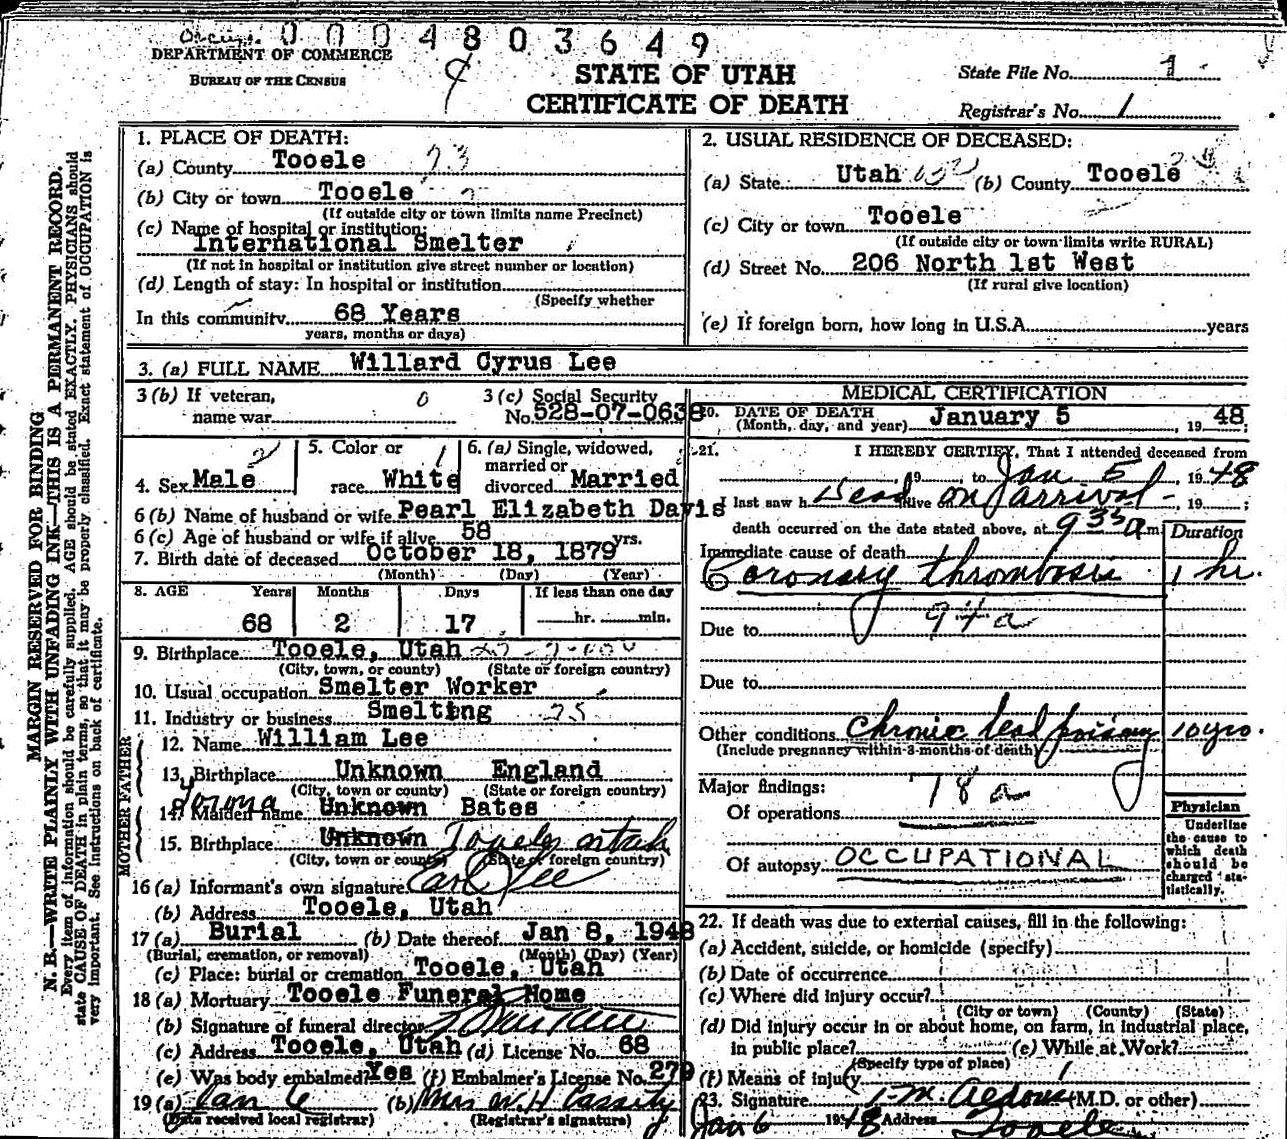 0004803649
DEPARTMENT OF COMMERCE
BUREAU OF THE CENSUS
STATE OF UTAH
CERTIFICATE OF DEATH
State File No. 1
Registrar's No. 1
MARGIN RESERVED FOR BINDING
N. B.—WRITE PLAINLY WITH UNFADING INK—THIS IS A PERMANENT RECORD.
Every item of information should be carefully supplied. AGE should be stated EXACTLY. PHYSICIANS should
state CAUSE OF DEATH in plain terms, so that it may be properly classified. Exact statement of OCCUPATION is
very important. See instructions on back of certificate.
1. PLACE OF DEATH:
(a) County Tooele 23
(b) City or town Tooele
(If outside city or town limits name Precinct)
(c) Name of hospital or institution:
International Smelter
(If not in hospital or institution give street number or location)
(d) Length of stay: In hospital or institution
(Specify whether
In this community 68 Years
years, months or days)
2. USUAL RESIDENCE OF DECEASED:
(a) State Utah (b) County Tooele
(c) City or town Tooele
(If outside city or town limits write RURAL)
(d) Street No. 206 North 1st West
(If rural give location)
(e) If foreign born, how long in U.S.A. years
3. (a) FULL NAME Willard Cyrus Lee
3 (b) If veteran, name war 0
3 (c) Social Security No. 528-07-0638
4. Sex Male
5. Color or race White
6. (a) Single, widowed, married or divorced Married
6 (b) Name of husband or wife Pearl Elizabeth Davis
6 (c) Age of husband or wife if alive 58 yrs.
7. Birth date of deceased October 18, 1879
(Month) (Day) (Year)
8. AGE Years Months Days If less than one day
68 2 17 hr. min.
9. Birthplace Tooele, Utah
(City, town, or county) (State or foreign country)
10. Usual occupation Smelter Worker
11. Industry or business Smelting
FATHER
12. Name William Lee
13. Birthplace Unknown England
(City, town or county) (State or foreign country)
MOTHER
14. Maiden name Unknown Bates
15. Birthplace Unknown Tooele, Utah
(City, town or county) (State or foreign country)
16 (a) Informant's own signature Earl Lee
(b) Address Tooele, Utah
17 (a) Burial (b) Date thereof Jan 8, 1948
(Burial, cremation, or removal) (Month) (Day) (Year)
(c) Place: burial or cremation Tooele, Utah
18 (a) Mortuary Tooele Funeral Home
(b) Signature of funeral director
(c) Address Tooele, Utah (d) License No. 68
(e) Was body embalmed? Yes (f) Embalmer's License No. 279
19 (a) Jan 6 (b) Mrs W. H. Cassity
(Date received local registrar) (Registrar's signature)
MEDICAL CERTIFICATION
20. DATE OF DEATH January 5, 1948;
(Month, day, and year)
21. I HEREBY CERTIFY, That I attended deceased from
19 to Jan 5, 1948
I last saw h Dead alive on arrival - , 19 ;
death occurred on the date stated above, at 9 35 a m.
Duration
Immediate cause of death
Coronary thrombosis 1 hr.
94a
Due to
Due to
Other conditions Chronic lead poisoning 10 yrs.
(Include pregnancy within 3 months of death)
Major findings: 78a
Of operations
Of autopsy OCCUPATIONAL
Physician
Underline the cause to which death should be charged statistically.
22. If death was due to external causes, fill in the following:
(a) Accident, suicide, or homicide (specify)
(b) Date of occurrence
(c) Where did injury occur?
(City or town) (County) (State)
(d) Did injury occur in or about home, on farm, in industrial place,
in public place? (e) While at Work?
(Specify type of place)
(f) Means of injury
23. Signature (M.D. or other)
Jan 6 1948 Address Tooele